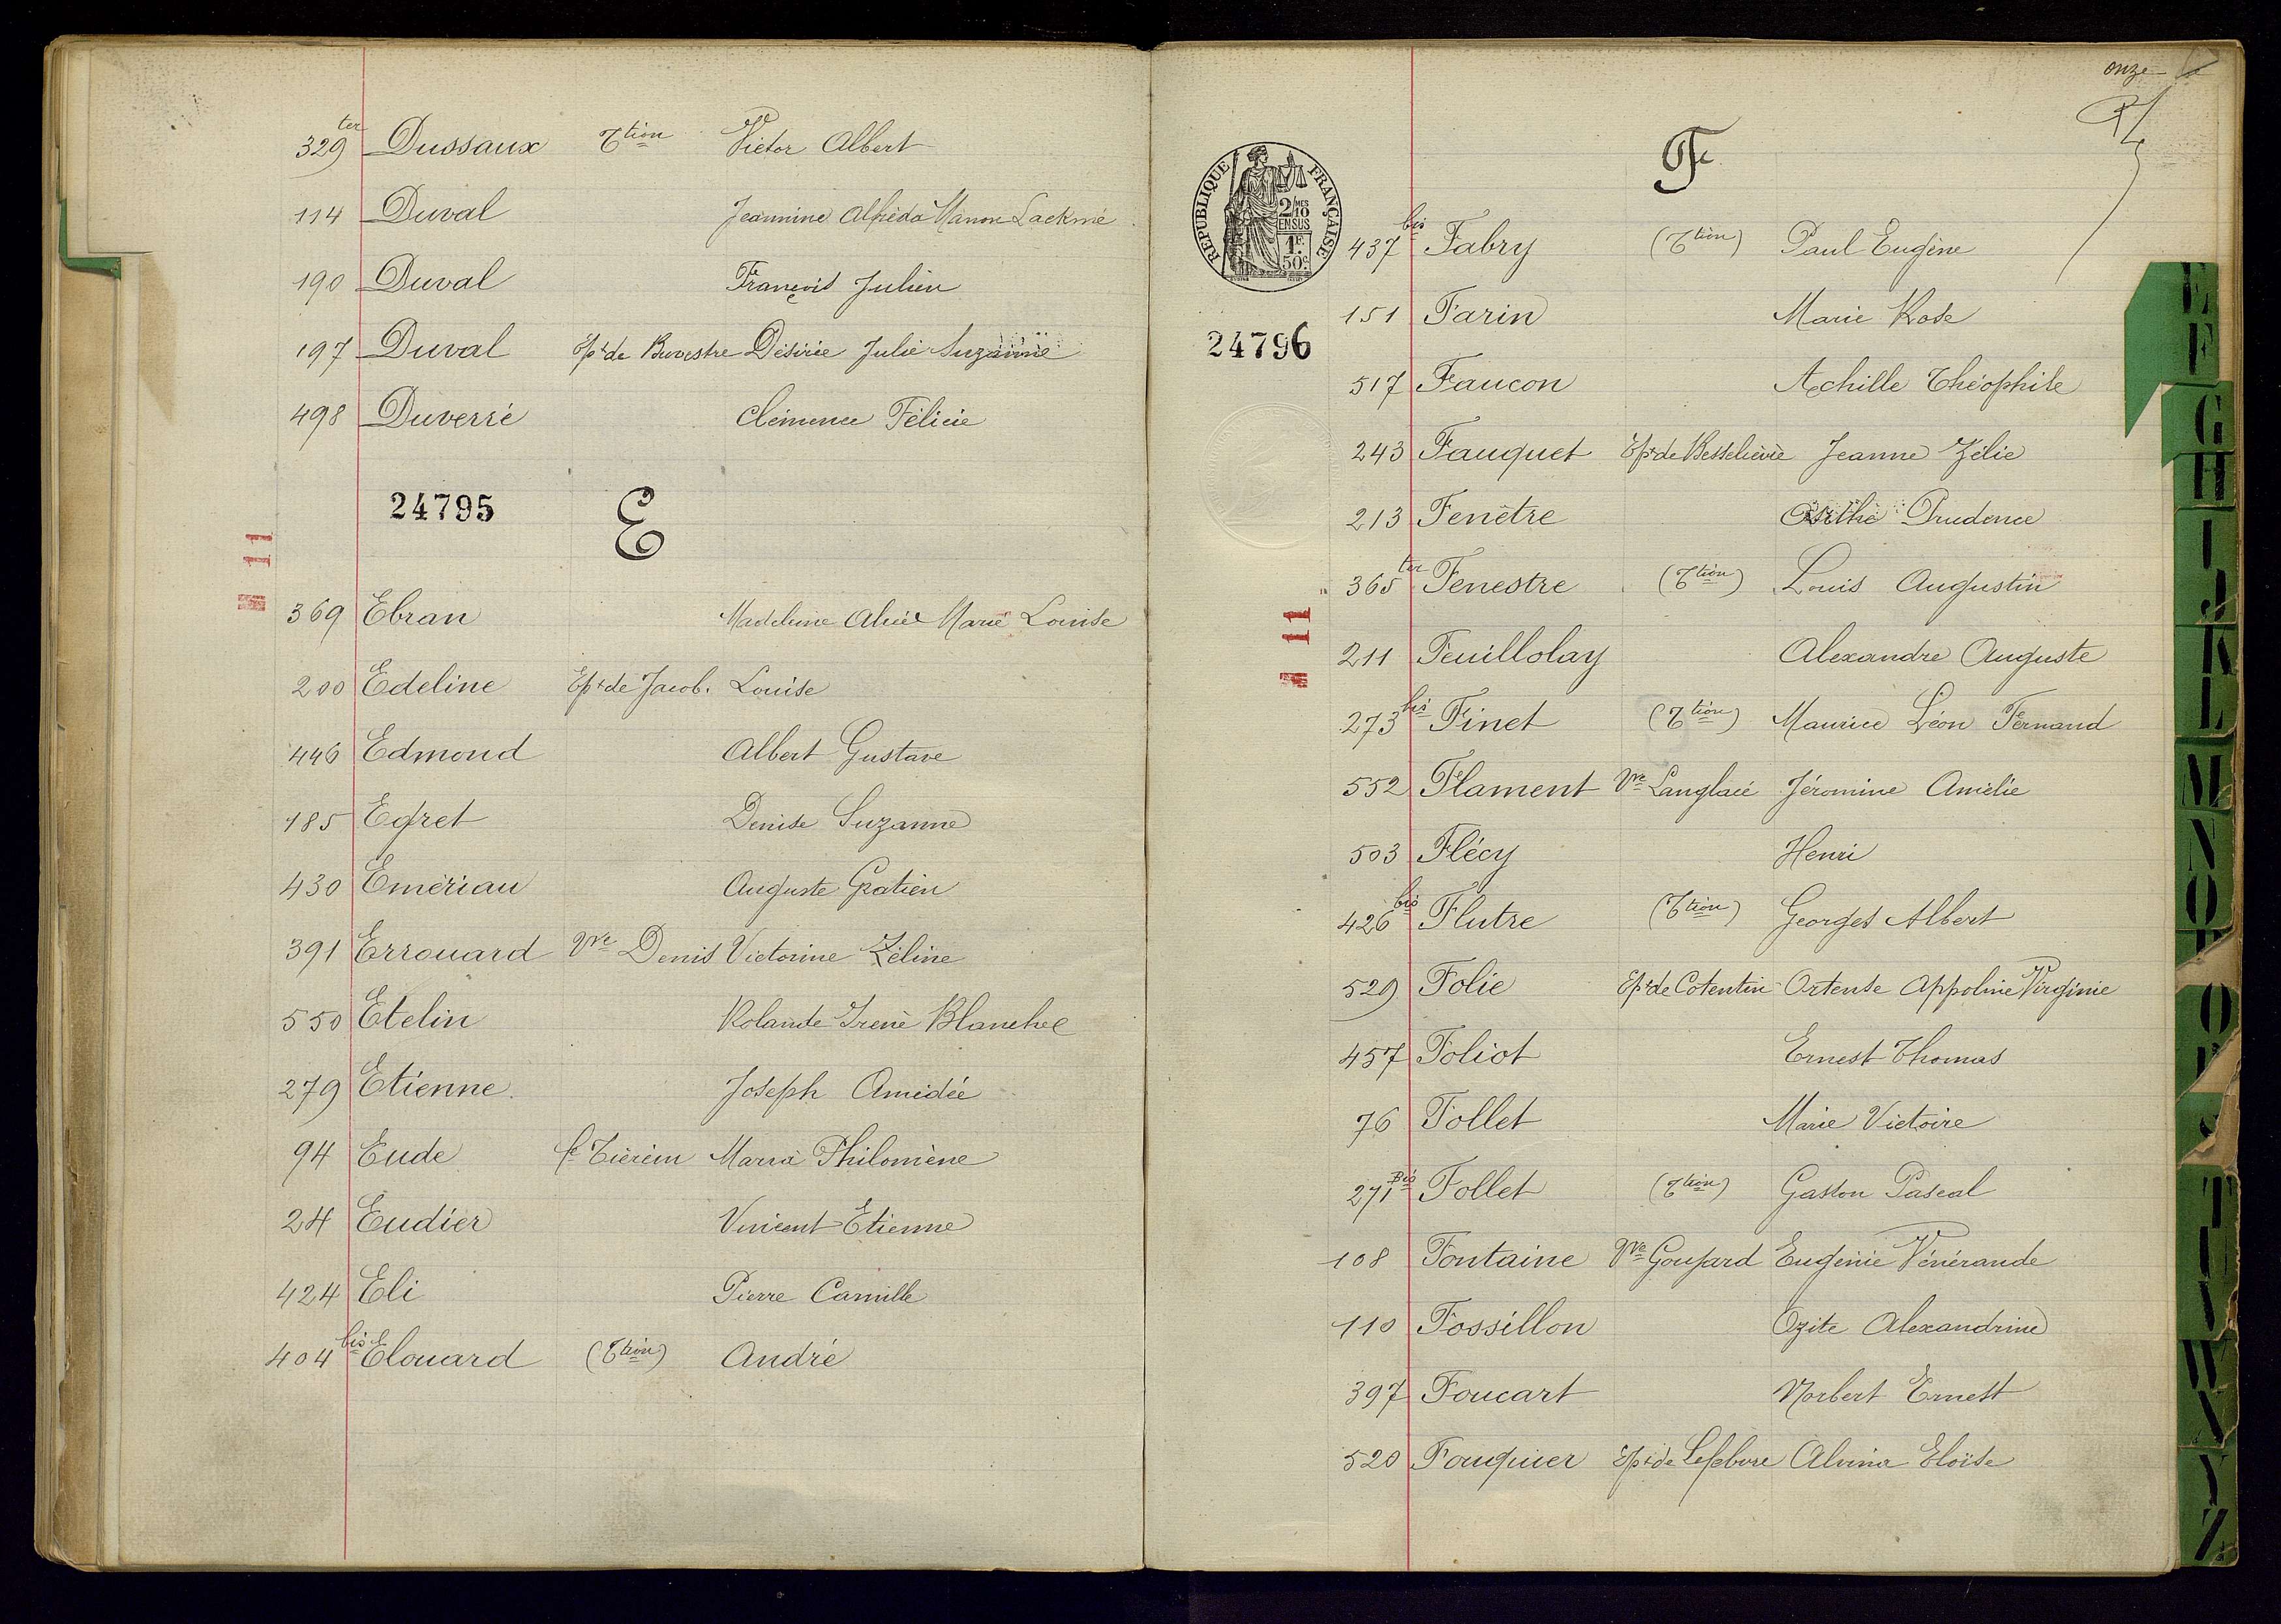 329 ter Dussaux Ttion Victor Albert
114 Duval Jeannine Alfréda Manon Lackmé
190 Duval François Julien
197 Duval Epse de Buvestre Désirée Julie Suzanne
498 Duverré Clémence Félicie
24795
E
11
369 Ebran Madeleine Alice Marie Louise
200 Edeline Epse de Jacob. Louise
446 Edmond Albert Gustave
185 Egret Denise Suzanne
430 Emériau Auguste Gratien
391 Errouard Vve Denis Victorine Zéline
550 Etelin Rolande Irène Blanche
279 Etienne. Joseph Amédée
94 Eude fe Maria Philomène
24 Eudier Vincent Etienne
424 Eli Pierre Camille
404 bis Elouard (Ttion) André
onze
F
REPUBLIQUE FRANÇAISE
2/10 MES
EN SUS
1F.
50c.
437 bis Fabry (Ttion) Paul Eugène
151 Farin Marie Rose
24796
517 Faucon Achille Théophile
243 Fauquet Epse de Besselièvre Jeanne Zélie
213 Fenêtre Prudence
365 ter Fenestre (Ttion) Louis Augustin
11
211 Feuillolay Alexandre Auguste
273 bis Finet (Ttion) Maurice Léon Fernand
552 Flament Vve Langlacé Jéromine Amélie
503 Flécy Henri
426 bis Flutre (Ttion) Georges Albert
529 Folie Epse de Cotentin Ortense Appoline Virginie
457 Foliot Ernest Thomas
76 Follet Marie Victoire
271 Bis Follet (Ttion) Gaston Pascal
108 Fontaine Vve Goujard Eugénie Vénérande
110 Fossillon Ozite Alexandrine
397 Foucart Norbert Ernest
520 Fouquier Epse de Lefebvre Alvina Eloïse
E
F
G
H
I
J
K
L
M
N
O
P
Q
R
S
T
U
V
W
X
Y
Z